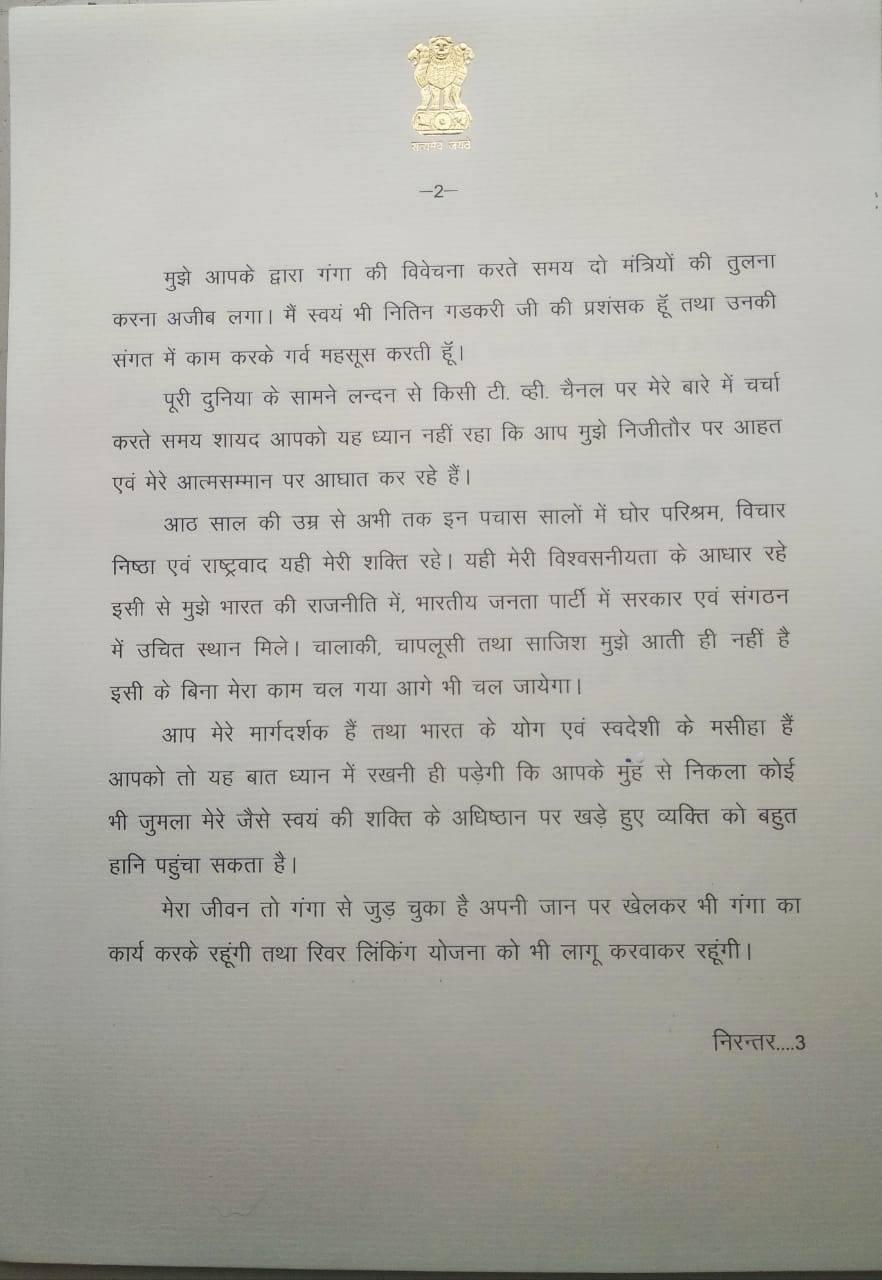 सत्यमेव जयते
—2—
मुझे आपके द्वारा गंगा की विवेचना करते समय दो मंत्रियों की तुलना
करना अजीब लगा। मैं स्वयं भी नितिन गडकरी जी की प्रशंसक हूॅं तथा उनकी
संगत में काम करके गर्व महसूस करती हूॅं।
पूरी दुनिया के सामने लन्दन से किसी टी. व्ही. चैनल पर मेरे बारे में चर्चा
करते समय शायद आपको यह ध्यान नहीं रहा कि आप मुझे निजीतौर पर आहत
एवं मेरे आत्मसम्मान पर आघात कर रहे हैं।
आठ साल की उम्र से अभी तक इन पचास सालों में घोर परिश्रम, विचार
निष्ठा एवं राष्ट्रवाद यही मेरी शक्ति रहे। यही मेरी विश्वसनीयता के आधार रहे
इसी से मुझे भारत की राजनीति में, भारतीय जनता पार्टी में सरकार एवं संगठन
में उचित स्थान मिले। चालाकी, चापलूसी तथा साजिश मुझे आती ही नहीं है
इसी के बिना मेरा काम चल गया आगे भी चल जायेगा।
आप मेरे मार्गदर्शक हैं तथा भारत के योग एवं स्वदेशी के मसीहा हैं
आपको तो यह बात ध्यान में रखनी ही पड़ेगी कि आपके मुंह से निकला कोई
भी जुमला मेरे जैसे स्वयं की शक्ति के अधिष्ठान पर खड़े हुए व्यक्ति को बहुत
हानि पहुंचा सकता है।
मेरा जीवन तो गंगा से जुड़ चुका है अपनी जान पर खेलकर भी गंगा का
कार्य करके रहूंगी तथा रिवर लिंकिंग योजना को भी लागू करवाकर रहूंगी।
निरन्तर....3